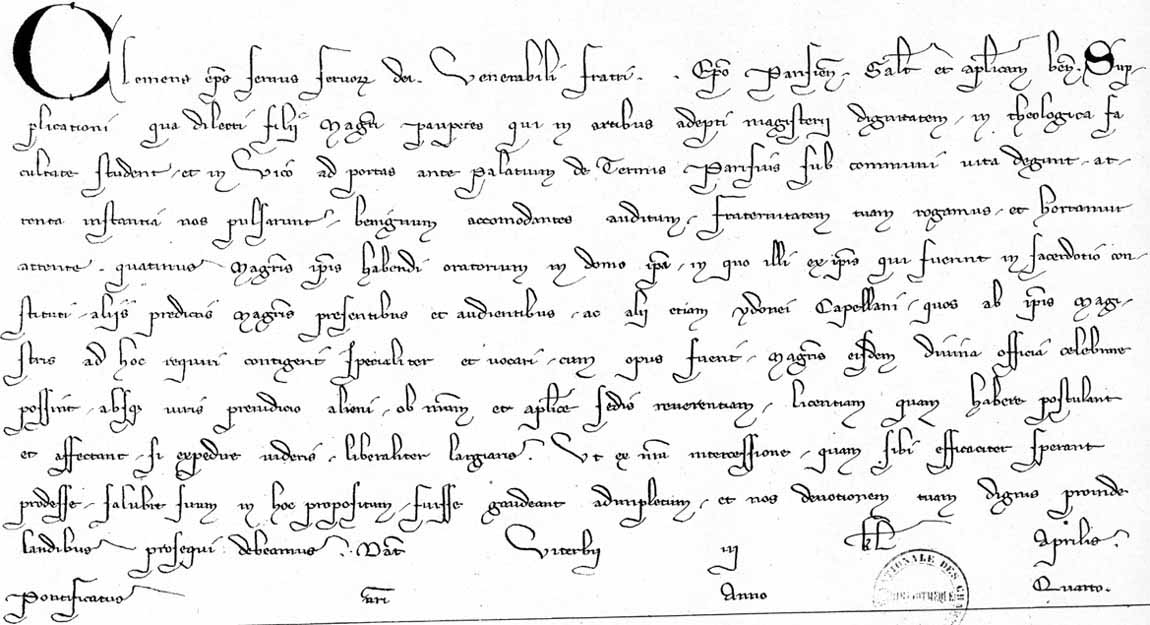 Clemens ep̄s servus servorꝝ dei. Venerabili fratri . . Ep̄o Parisien̄. Sal̄t et ap̄licam ben̄. Sup-
plicationi qua dilecti filii Magr̄i pauperes qui in artibus adepti magisterii dignitatem, in theologica fa
cultate student, et in Vico ad portas ante Palatium de Termis Parisius sub communi vita degunt, at-
tenta instantia nos pulsarunt, benignum accomodantes auditum, fraternitatem tuam rogamus, et hortamur
attente, quatinus Magr̄is ip̄is habendi oratorium in domo ip̄a, in quo illi ex ip̄is qui fuerint in sacerdotio con-
stituti, aliis predictis magr̄is presentibus et audientibus, ac alii etiam ydonei Capellani, quos ab ip̄is Magi-
stris ad hoc requiri contigerit specialiter et vocari, cum opus fuerit, magr̄is eisdem divina officia celebrare
possint, absqꝫ iuris preiudicio alieni, ob nr̄am et ap̄lice sedis reverentiam, licentiam quam habere postulant
et affectant, si expedire videris, liberaliter largiaris. Ut ex nr̄a intercessione, quam sibi efficaciter sperant
prodesse, salubre suum in hoc propositum, fuisse gaudeant adimpletum, et nos devotionem tuam dignis proinde
laudibus prosequi debeamus. Dat̄ Viterbii iij kl̄ Aprilis.
Pontificatus nr̄i Anno Quarto.